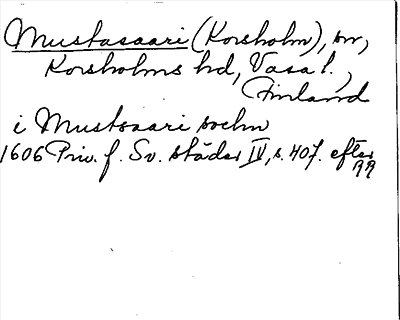 Mustasaari (Korsholm), sn,
Korsholms hd, Vasa l.,
Finland
i Mustsaari sochn
1606 Priv. f. Sv. städer IV, s. 407. efter
RR